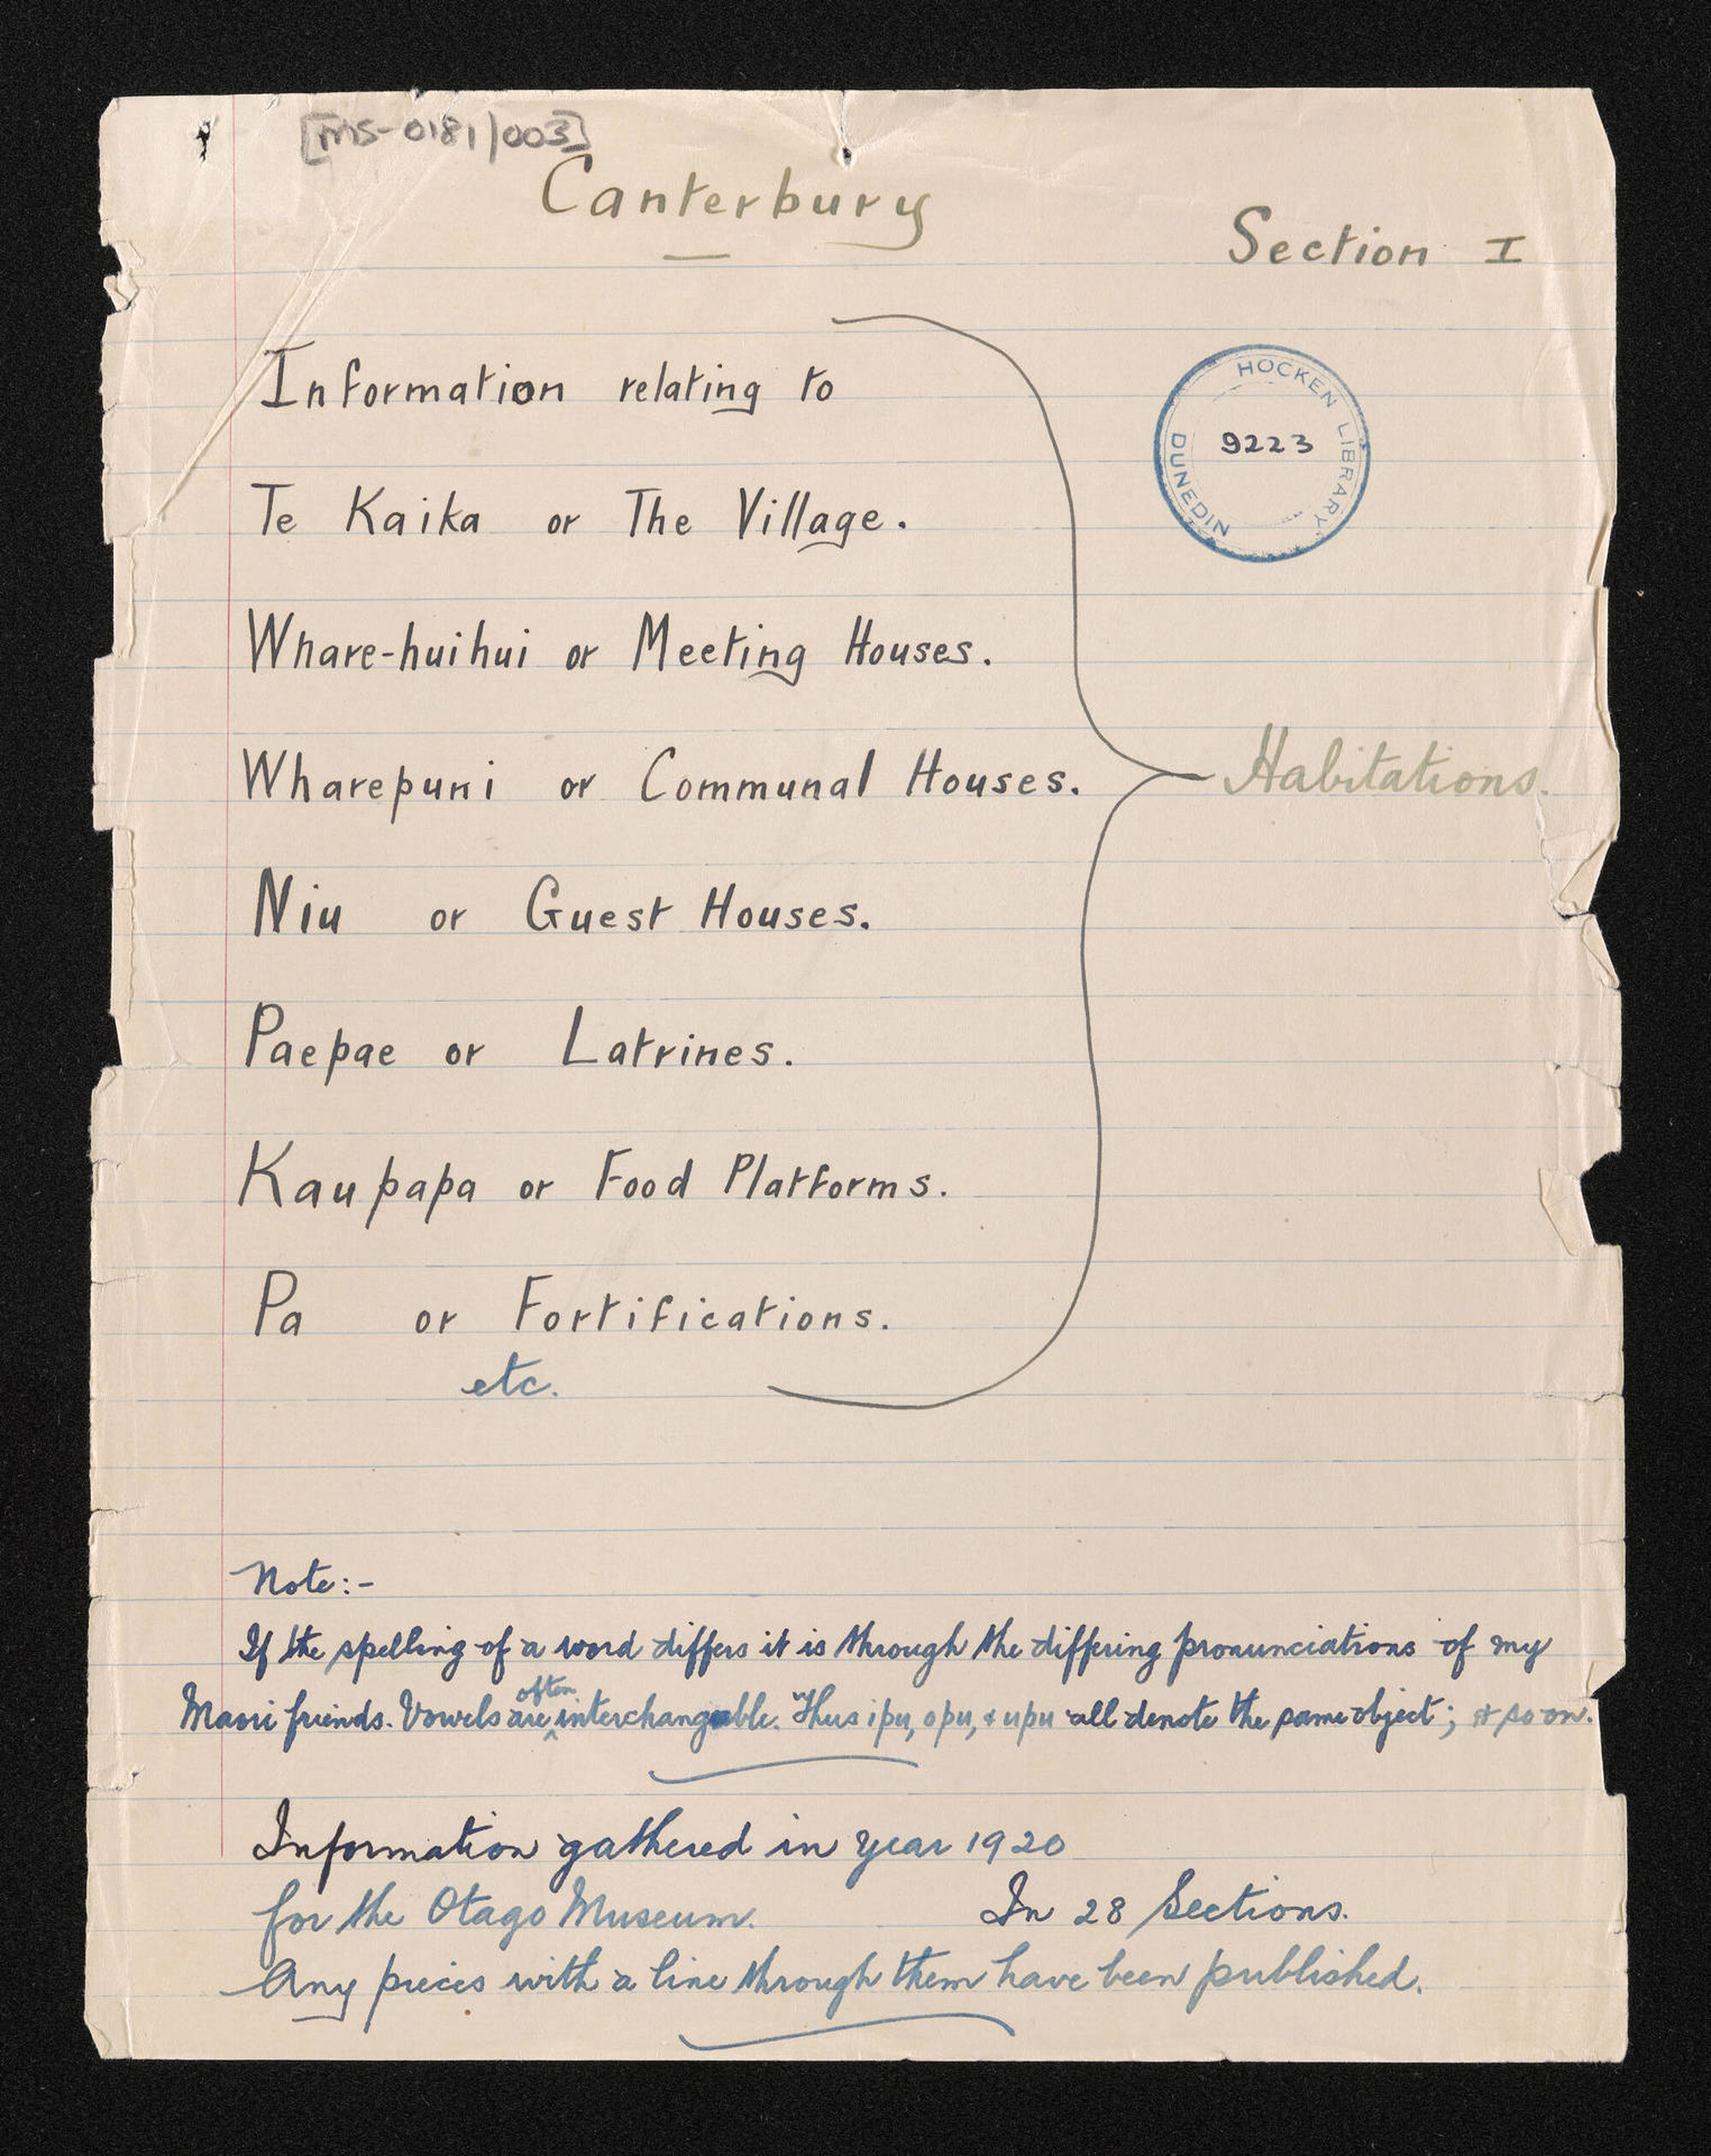 [MS-0181/003]
Canterbury
Section I
Information relating to
HOCKEN LIBRARY
9223
DUNEDIN
Te Kaika or The Village.
Whare-huihui or Meeting Houses.
Wharepuni or Communal Houses.
Habitations.
Niu or Guest Houses.
Paepae or Latrines.
Kaupapa or Food Platforms.
Pa or Fortifications.
etc.
Note:-
If the spelling of a word differs it is through the differing pronunciations of my
Maori friends. Vowels are often interchangable. Thus ipu, opu, & upu all denote the same object; & so on.
Information gathered in year 1920
for the Otago Museum. In 28 Sections.
Any pieces with a line through them have been published.